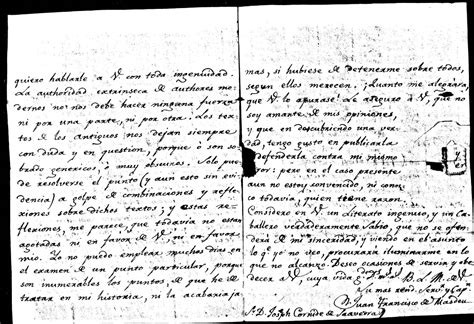 quiero hablarle a V. con toda ingenuidad.
La authoridad extrinseca de authores mo-
dernos no nos debe hacer ninguna fuerza
ni por una parte, ni por otra. Los tex-
tos de los antiguos nos dejan siempre
con duda y en question, porque o son so-
brado genericos, o muy obscuros. Solo pue-
de resolverse el punto (y aun esto sin evi-
dencia) a golpe de combinaciones y refle-
xiones sobre dichos textos; y estas re-
flexiones, me parece, que todavia no estan
apotadas ni en favor de V. ni en favor
mio. Yo no puedo emplear muchos dias en
el examen de un punto particular, porque
son inumerables los puntos, de que he de
tratar en mi historia, ni la acabaria ja
mas, si hubiese de detenerme sobre todos,
segun ellos merecen. ¡Quanto me alegrara,
que V. lo apurase! Le aseguro a V., que no
soy amante de mis opiniones,
y que en descubriendo una ver-
dad, tengo gusto en publicarla
y defenderla contra mi mismo
error: pero en el caso presente
aun no estoy convencido, ni conoz-
co todavia, quien tiene razon.
Considero en V. un Literato ingenuo, y un Ca-
ballero verdaderamente sabio, que no se ofen-
derá de mi sinceridad, y viendo en el asunto
lo q.e yo no veo, procurará iluminarme en lo
que no alcanzo. Deseo ocasiones de servir y obe-
decer a V., cuya vida
B. L. M. de V.
Su mas rend. Serv.r y Cap.n
D. Juan Francisco de Masdeu
S.r D. Joseph Cornide de Traveira